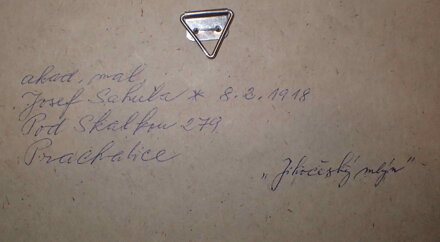 akad. mal.
Josef Sahula * 8. 2. 1918
Pod Skalkou 279
Prachatice
„Jihočeský mlýn"